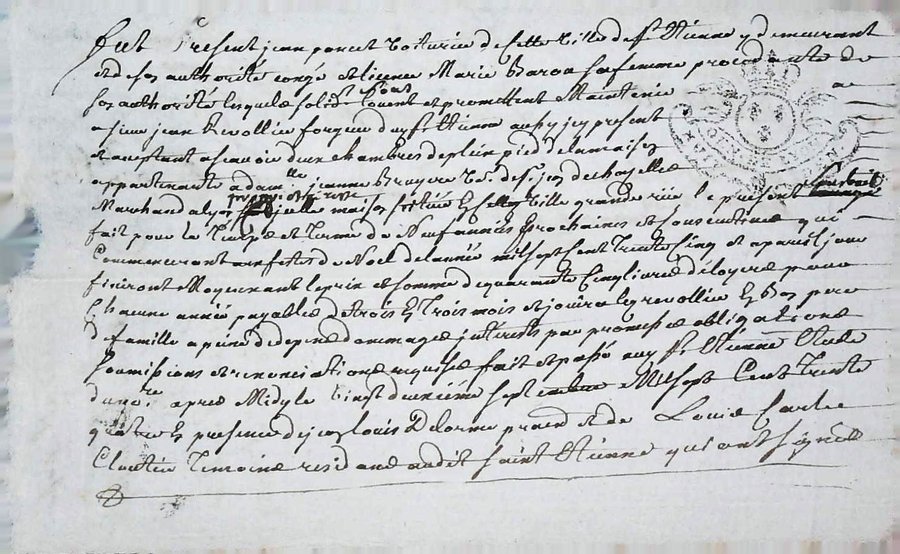 fut Present jean poncet Voiturier de cette Ville de St Etienne y demeurant
et de son authorité congé et licence Marie Baroa sa femme procedante de
son authorité lesquels solidt pour Louent et promettent Maintenir
a sieur jean Revollier forgeur dudit St Etienne aussy icy present
et acceptant a scavoir deux chambres de plein pied de la maison
appartenante a damlle jeanne Bruyere de
Marchand a lyon maison située en cette ville grande rüe le present
fait pour le Temps et Terme de Neuf années prochaines et consecutives qui
Commenceront aux festes de Noel de l'année mil sept Cent Trente Cinq et a pareil jour
finiront Moyennant le prix et somme de quarante Cinq livres de loyer pour
Chacune année payable de trois en Trois mois et jouira le Revollier en Bon pere
de famille a peine de depens dommages interests par promesses obligations
soumissions et renonciations requises fait et passé audit St Etienne Etude
du nore apres Midy le vingt deuxieme septembre Mil sept Cent Trente
quatre en presence de louis Delorme praticien et de Louis Carles
Cloutier Temoins residans audit saint Etienne qui ont signé